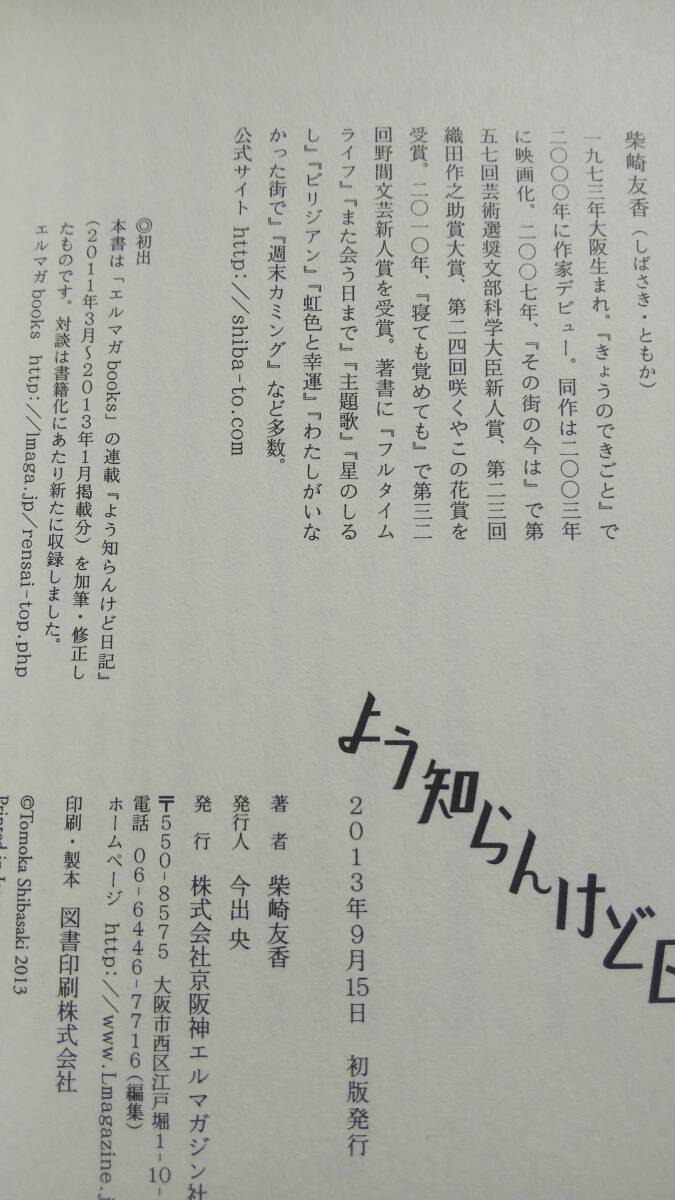 柴崎友香（しばさき・ともか）
一九七三年大阪生まれ。『きょうのできごと』で
二〇〇〇年に作家デビュー。同作は二〇〇三年
に映画化。二〇〇七年、『その街の今は』で第
五七回芸術選奨文部科学大臣新人賞、第二三回
織田作之助賞大賞、第二四回咲くやこの花賞を
受賞。二〇一〇年、『寝ても覚めても』で第三二
回野間文芸新人賞を受賞。著書に『フルタイム
ライフ』『また会う日まで』『主題歌』『星のしる
し』『ビリジアン』『虹色と幸運』『わたしがいな
かった街で』『週末カミング』など多数。
公式サイト http://shiba-to.com
◎初出
本書は「エルマガbooks」の連載『よう知らんけど日記』
（2011年3月〜2013年1月掲載分）を加筆・修正し
たものです。対談は書籍化にあたり新たに収録しました。
エルマガbooks http://lmaga.jp/rensai-top.php
よう知らんけど日
2013年9月15日 初版発行
著 者 柴崎友香
発行人 今出 央
発 行 株式会社京阪神エルマガジン社
〒550-8575 大阪市西区江戸堀1-10-
電話 06-6446-7716（編集）
ホームページ http://www.Lmagazine.j
印刷・製本 図書印刷株式会社
©Tomoka Shibasaki 2013
Printed in